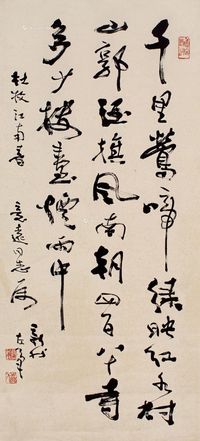 千里鶯啼綠映紅水村
山郭酒旗風南朝四百八十寺
多少樓臺煙雨中
杜牧江南春 意遠同志屬